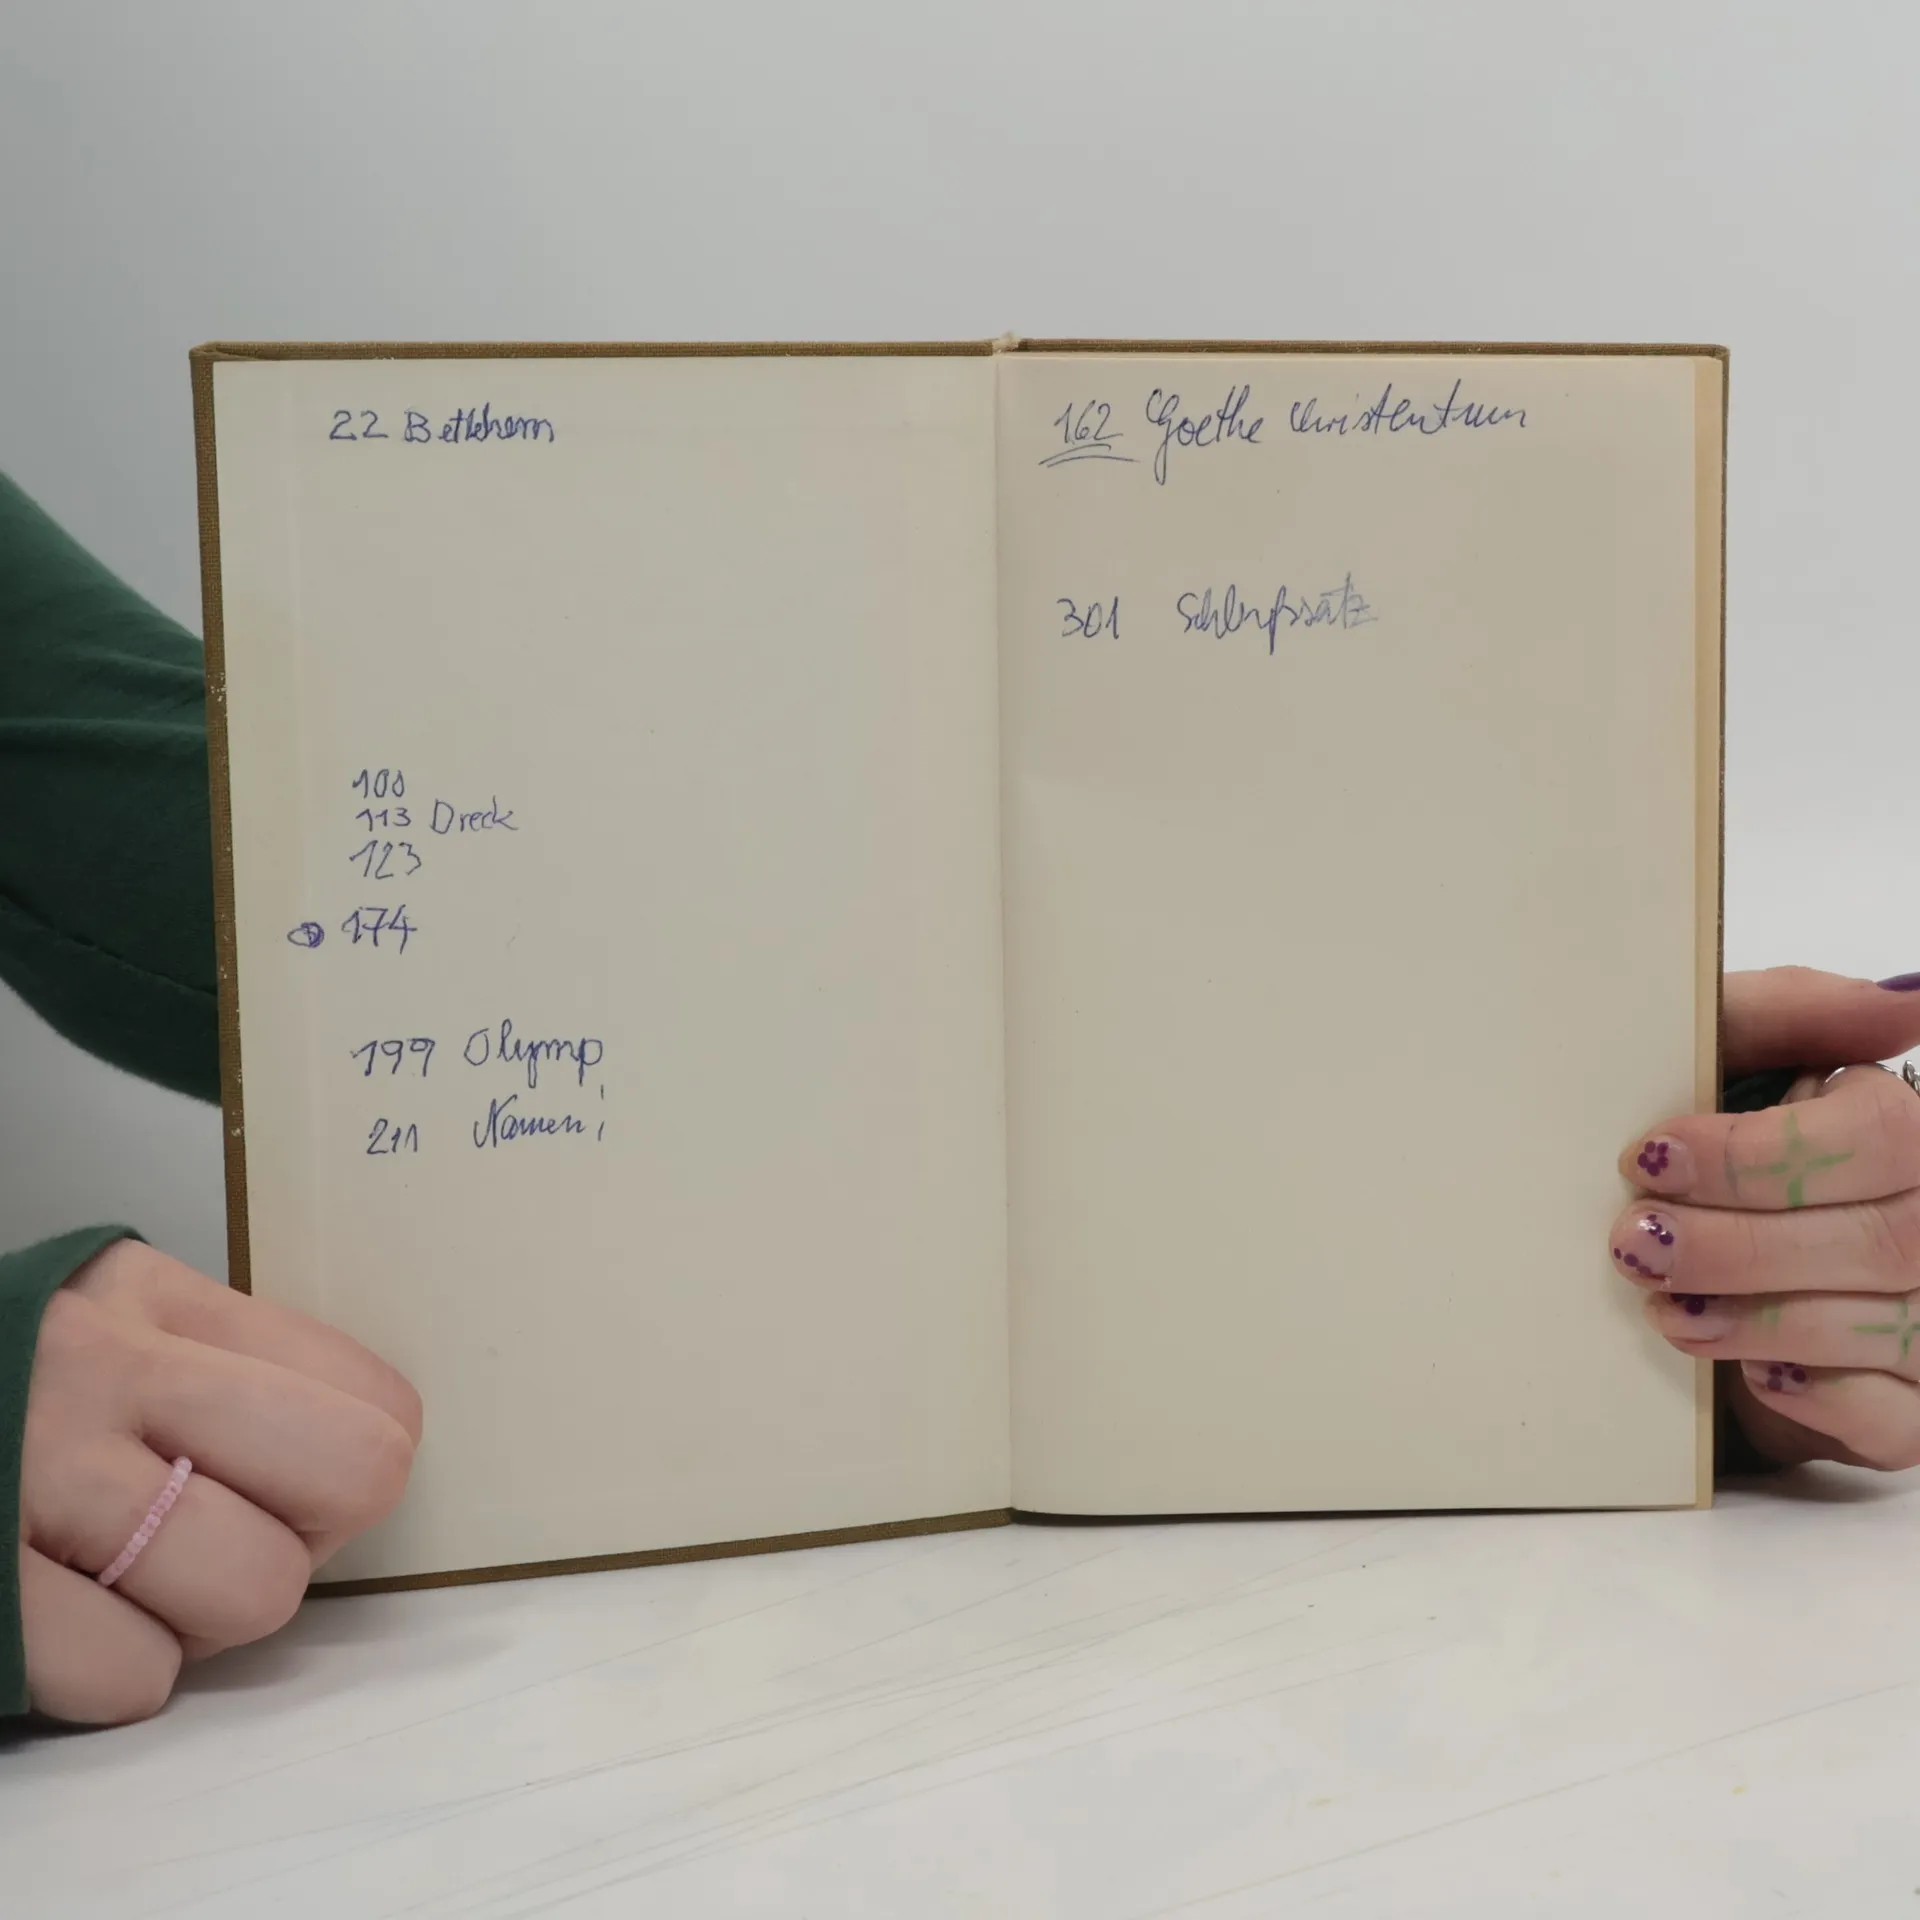 22 Betlehem
100
113 Dreck
123
174
199 Olymp
211 Namen!
162 Goethe Christentum
301 Schlußsatz